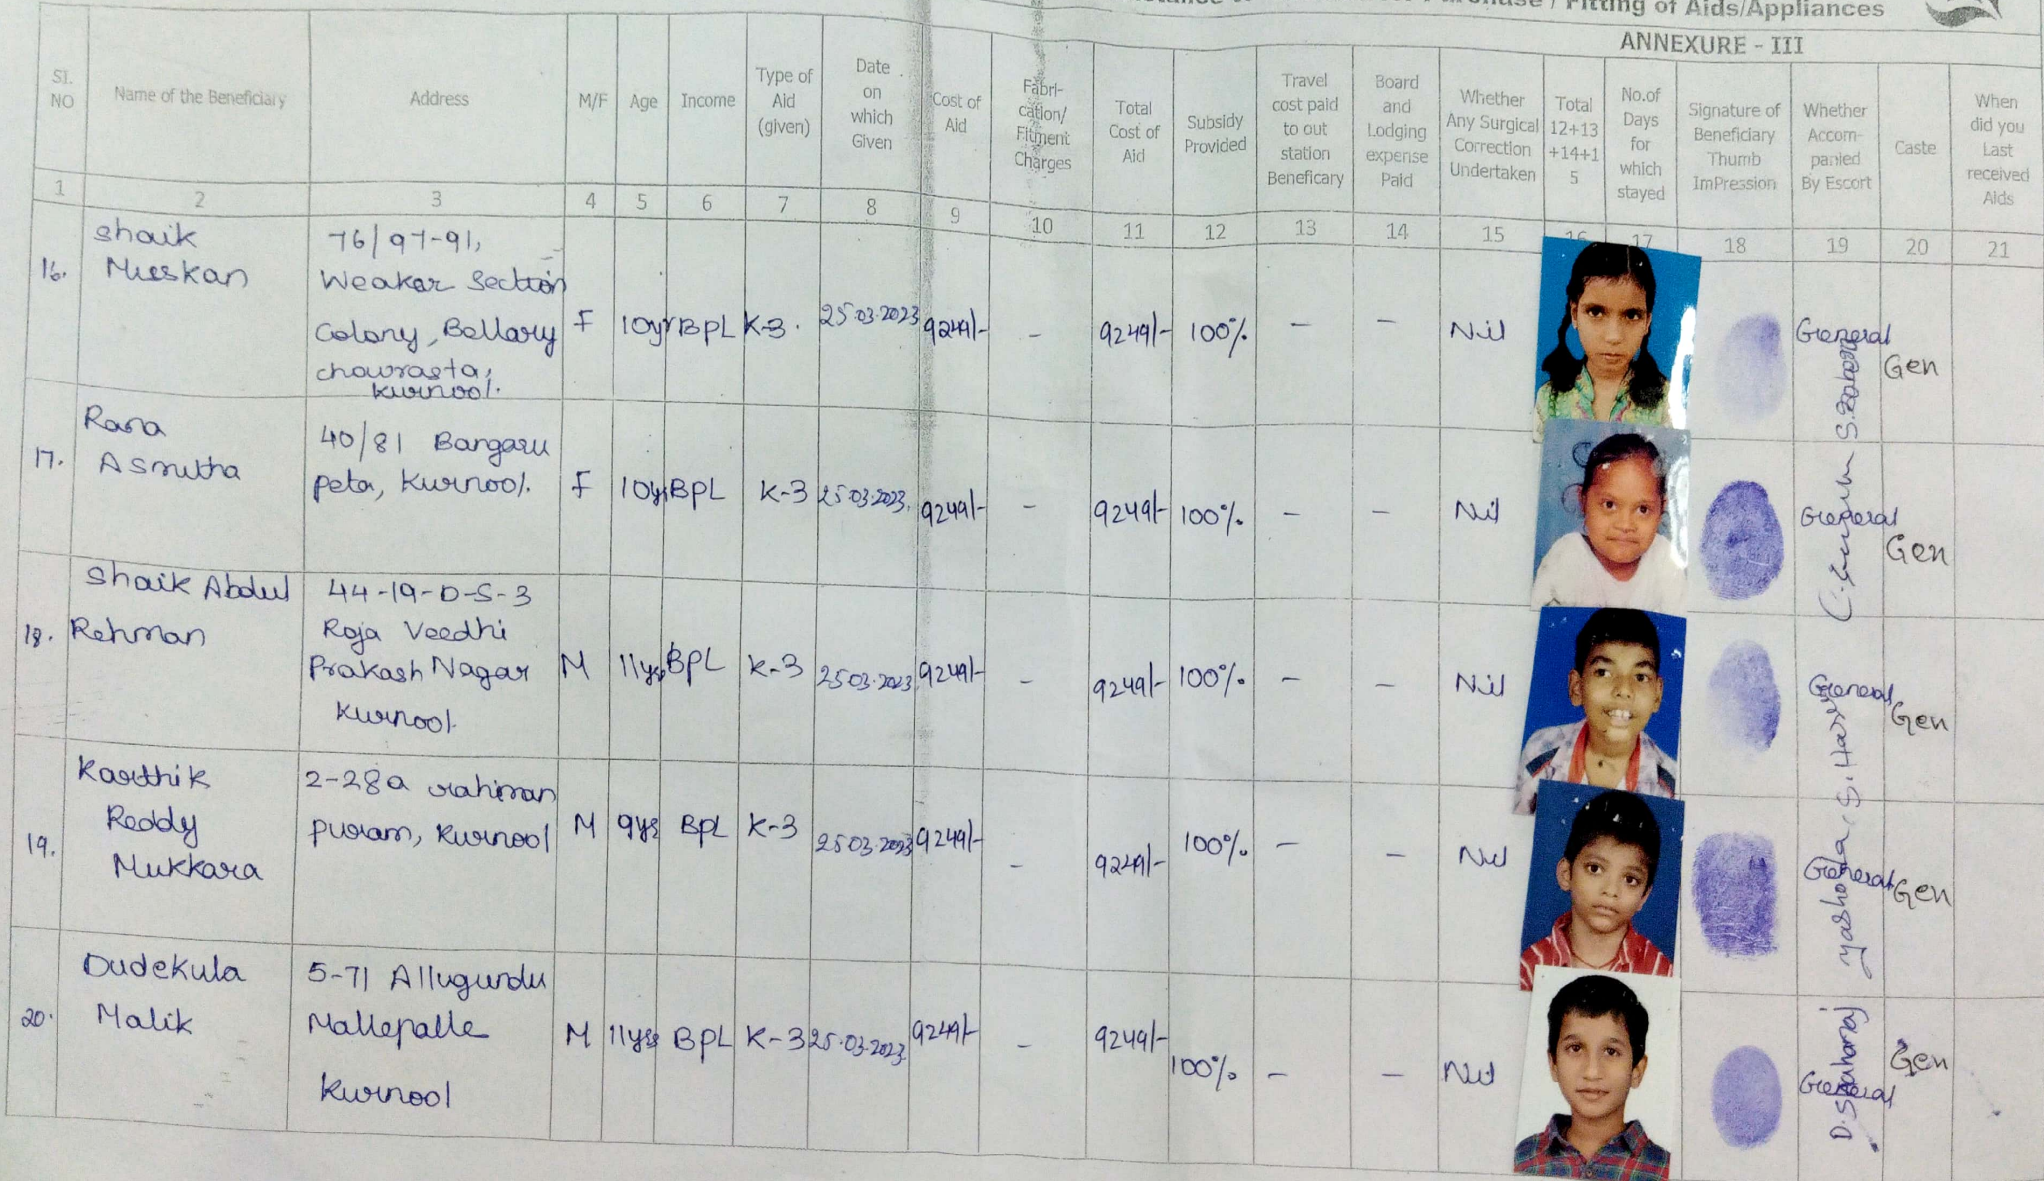 Purchase / Fitting of Aids/Appliances
ANNEXURE - III
SI. NO
Name of the Beneficiary
Address
M/F
Age
Income
Type of Aid (given)
Date on which Given
Cost of Aid
Fabri-cation/ Fitment Charges
Total Cost of Aid
Subsidy Provided
Travel cost paid to out station Beneficary
Board and Lodging expense Paid
Whether Any Surgical Correction Undertaken
Total 12+13 +14+1 5
No.of Days for which stayed
Signature of Beneficiary Thumb ImPression
Whether Accom-panied By Escort
Caste
When did you Last received Aids
1 2 3 4 5 6 7 8 9 10 11 12 13 14 15 16 17 18 19 20 21
16. Shaik Muskan
76/97-91,
Weakar Section
Colony, Bellary
chowrasta,
Kurnool.
F 10yr BPL K-3. 25.03.2023 9249/- - 9249/- 100% - - Nil General Gen
17. Rana Asmitha
40/81 Bangaru
peta, Kurnool.
F 10ys BPL K-3 25.03.2023. 9249/- - 9249/- 100% - - Nil General Gen
18. Shaik Abdul Rehman
44-19-D-S-3
Roja Veedhi
Prakash Nagar
Kurnool.
M 11ys BPL K-3 25.03.2023 9249/- - 9249/- 100% - - Nil General Gen
19. Karthik Reddy Mukkara
2-28a rahiman
puram, Kurnool
M 9ys BPL K-3 25.03.2023 9249/- - 9249/- 100% - - Nil General Gen
yashoda
20. Dudekula Malik
5-71 Allugundu
Mallepalle
Kurnool
M 11ys BPL K-3 25.03.2023. 9249/- - 9249/- 100% - - Nil General Gen